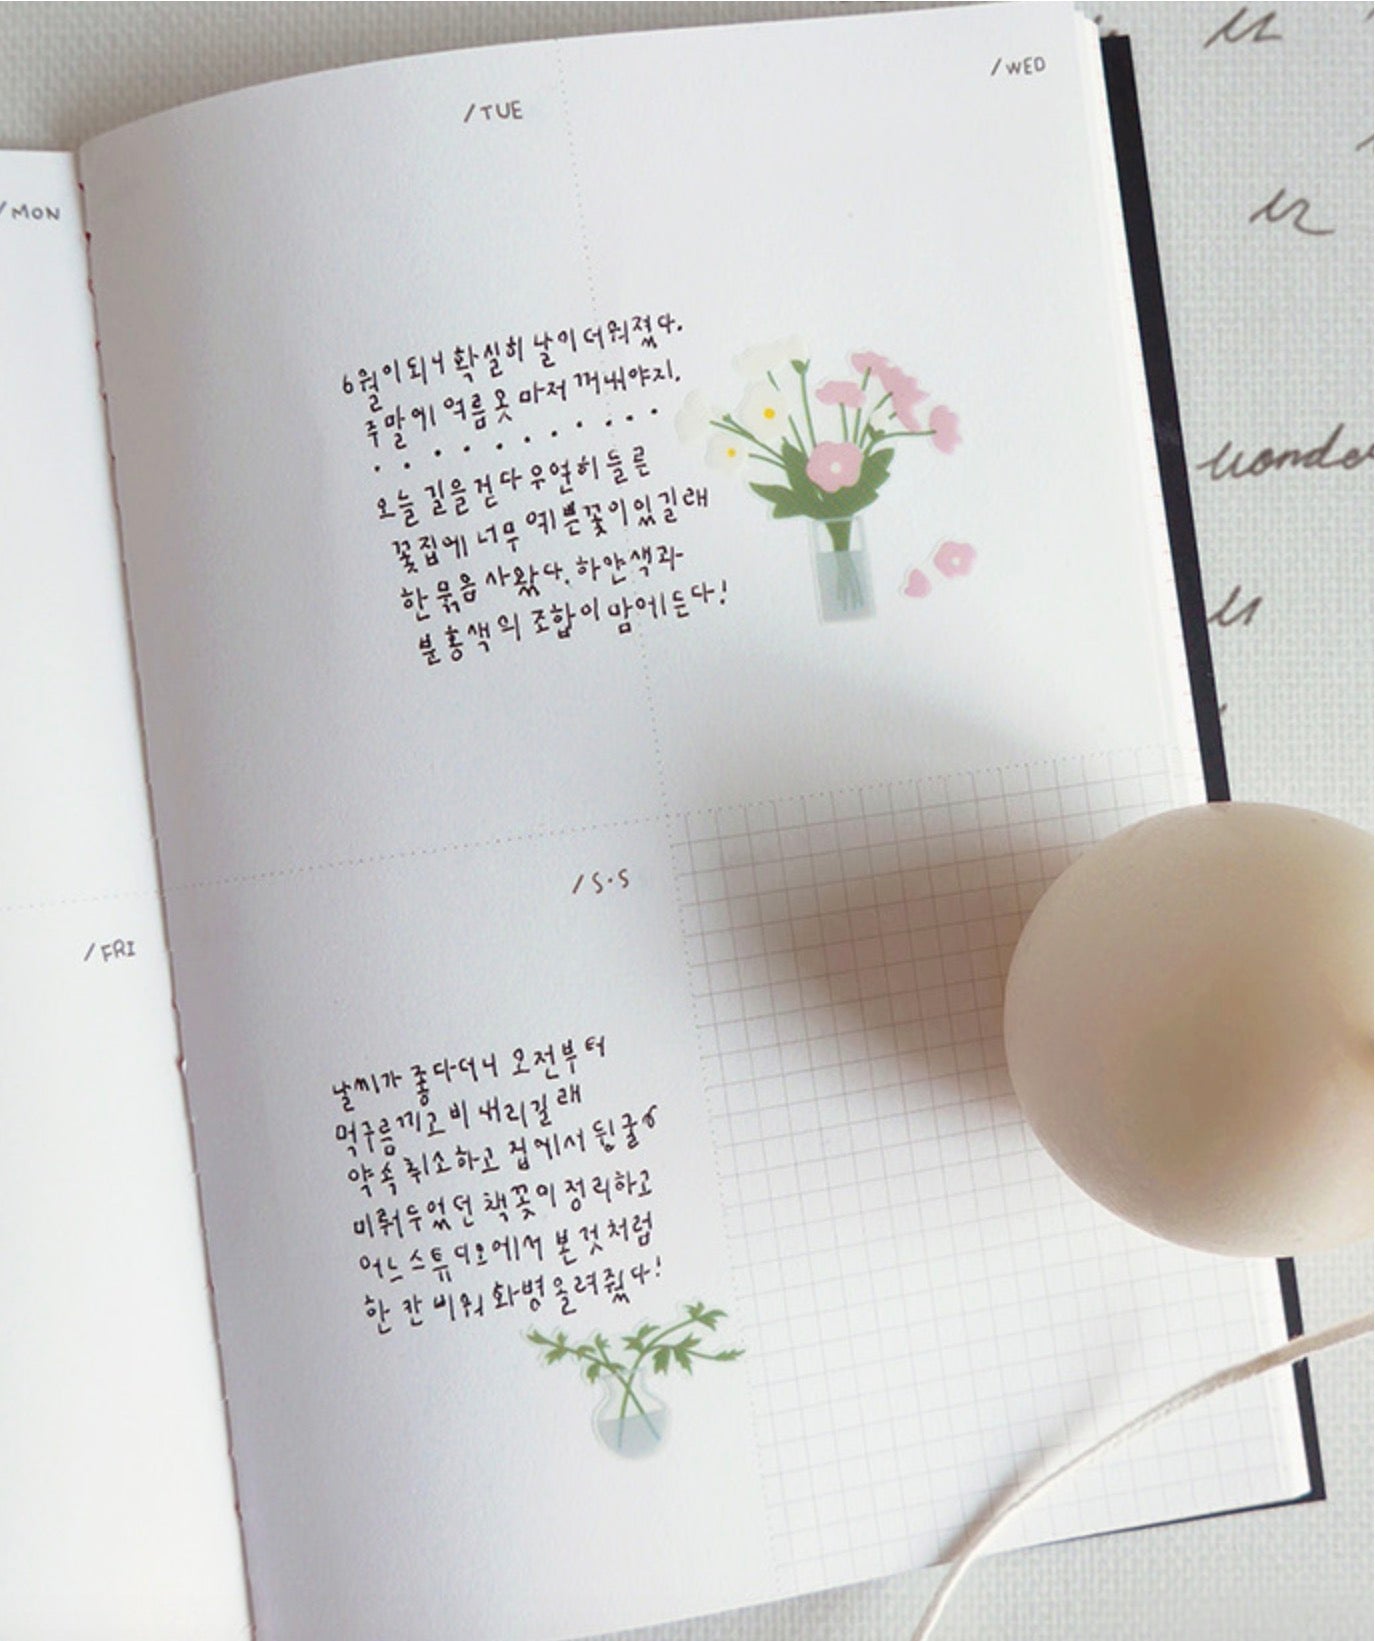 /MON
/TUE
/WED
6월이 되니 확실히 날이 더워졌다.
주말에 여름옷 마저 꺼내야지.
오늘 길을 걷다 우연히 들른
꽃집에 너무 예쁜 꽃이 있길래
한 묶음 사왔다. 하얀색과
분홍색의 조합이 맘에 든다!
/FRI
/S·S
날씨가 좋다더니 오전부터
먹구름 끼고 비 내리길래
약속 취소하고 집에서 뒹굴
미뤄두었던 책꽂이 정리하고
어느 스튜디오에서 본 것처럼
한 칸 비워 화병 올려줬다!
wonde